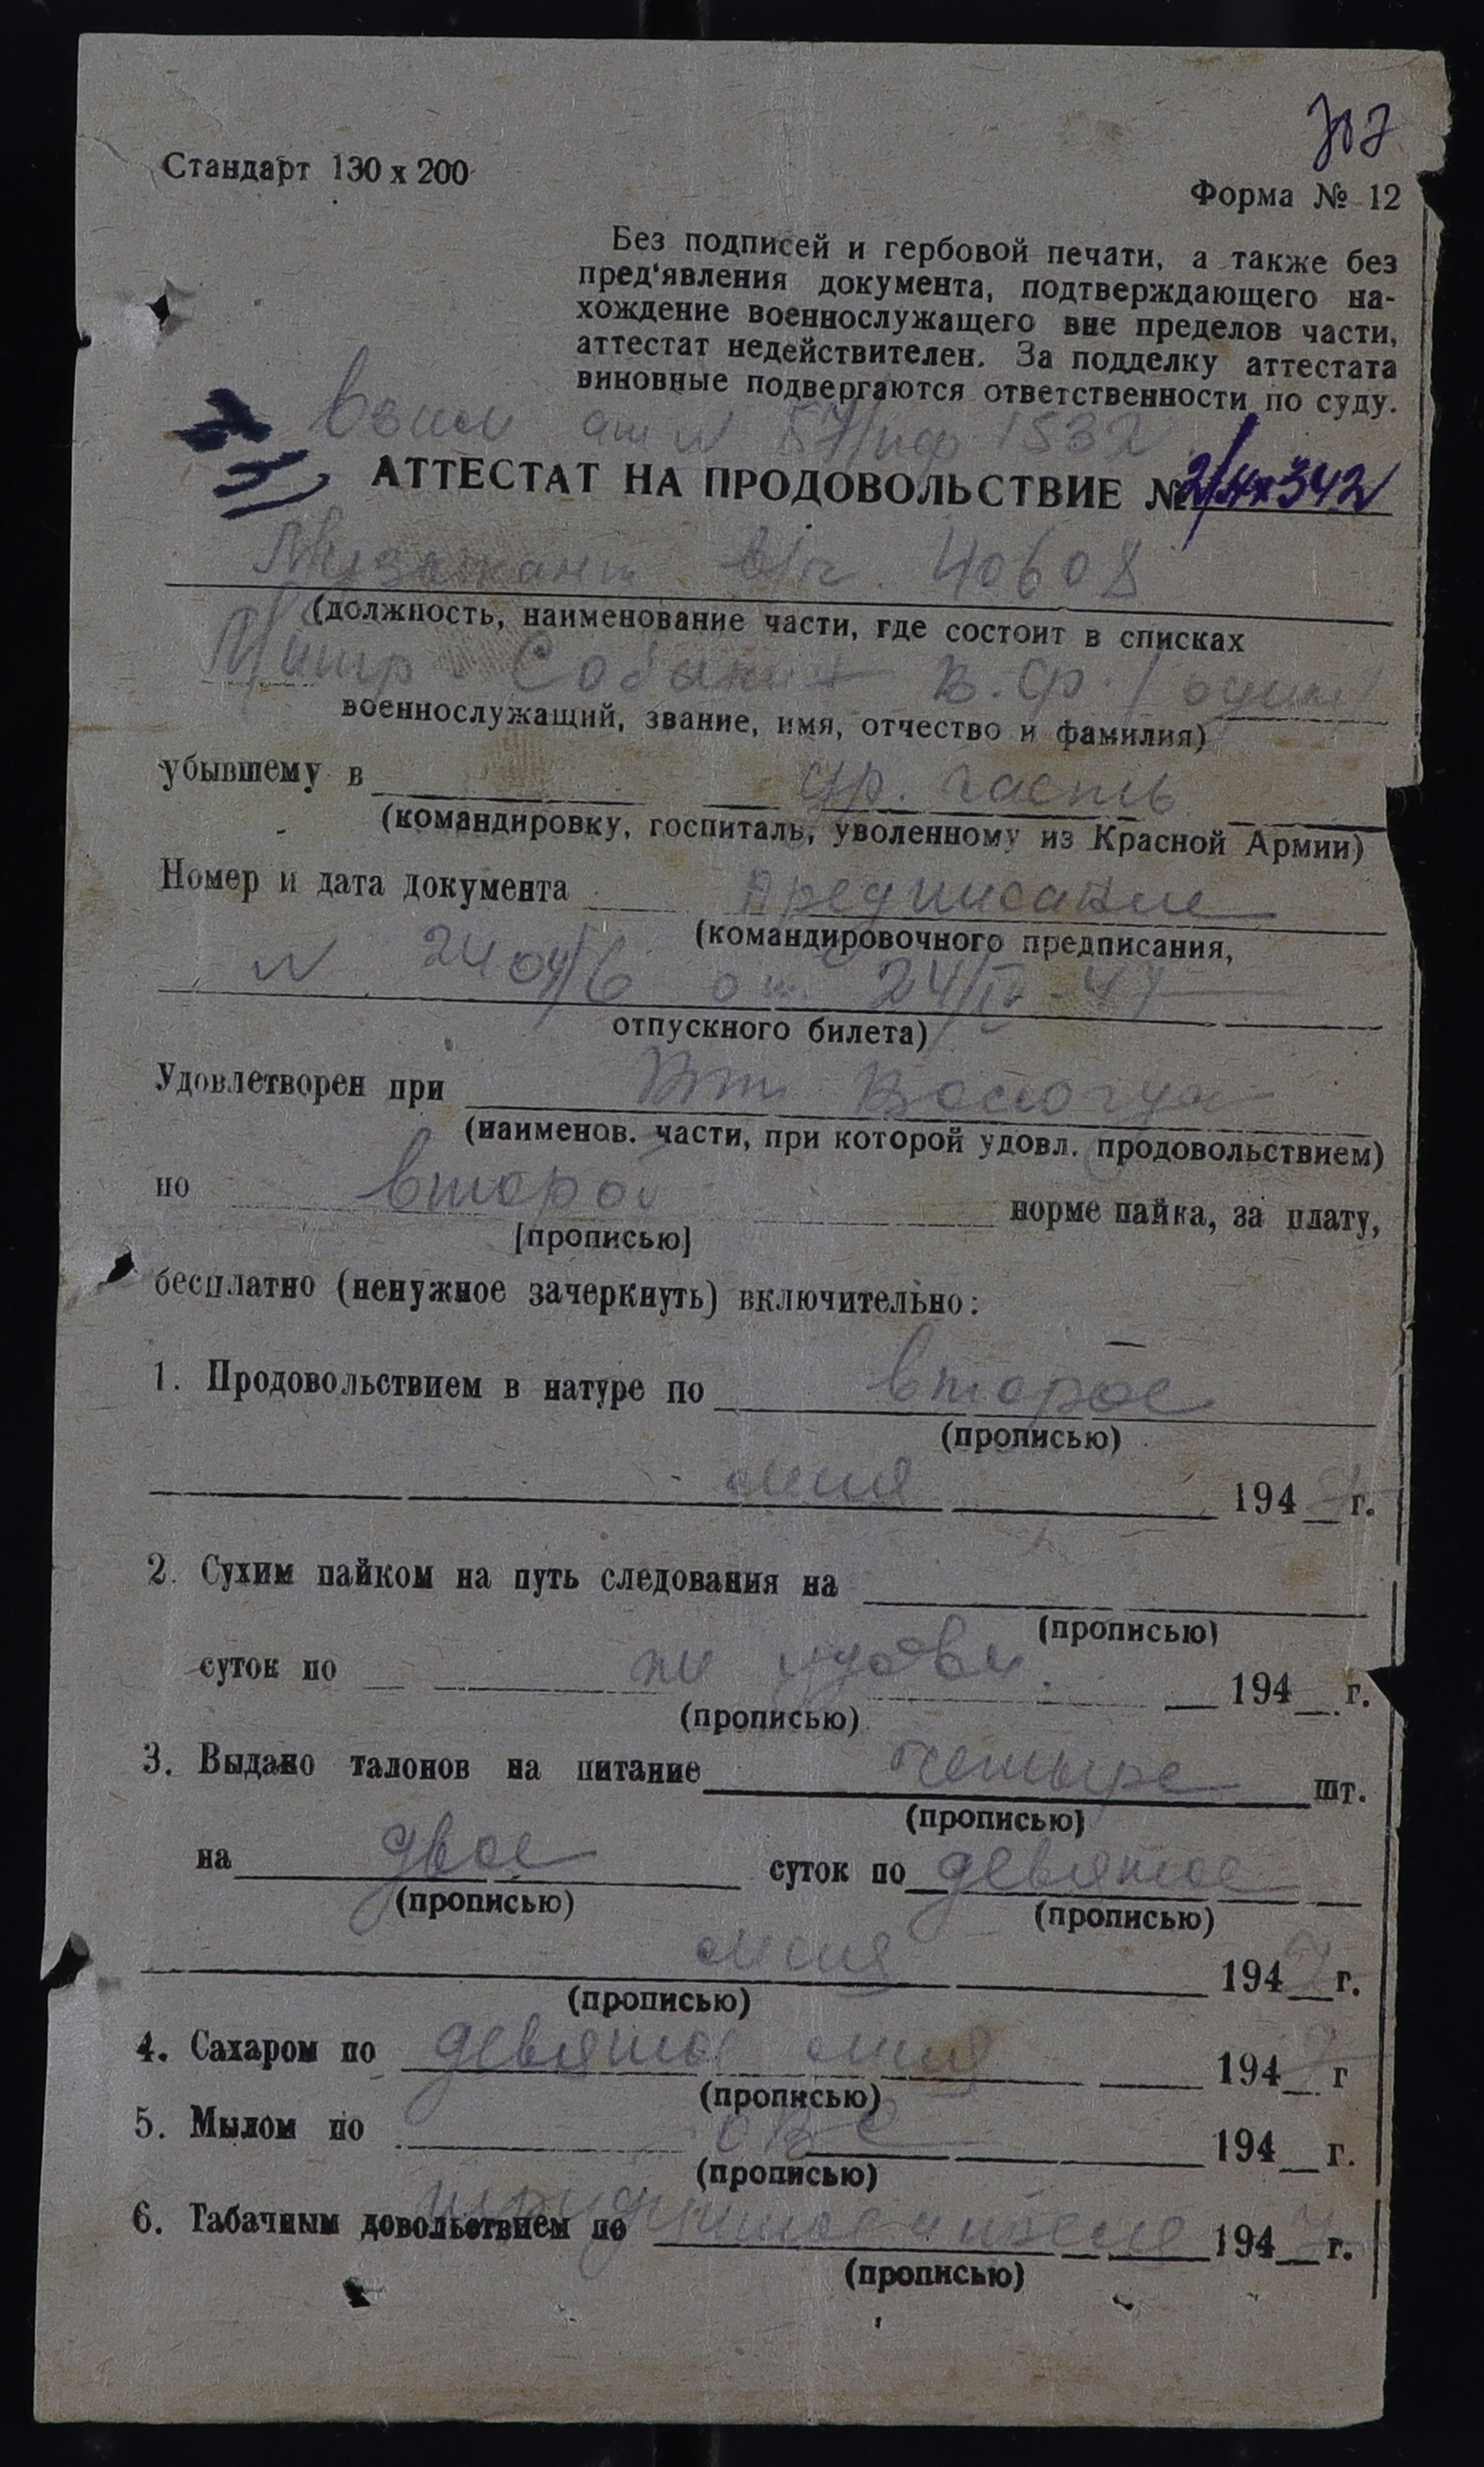 Стандарт 130 х 200
Форма № 12
Без подписей и гербовой печати, а также без
пред'явления документа, подтверждающего на-
хождение военнослужащего вне пределов части,
аттестат недействителен. За подделку аттестата
виновные подвергаются ответственности по суду.
1532
АТТЕСТАТ НА ПРОДОВОЛЬСТВИЕ №
Музыкант в/ч. 40608
(должность, наименование части, где состоит в списках
В. Ф. / один /
военнослужащий, звание, имя, отчество и фамилия)
убывшему в др. часть
(командировку, госпиталь, уволенному из Красной Армии)
Номер и дата документа предписание
(командировочного предписания,
от 24/IV-47
отпускного билета)
Удовлетворен при Вологда
(наименов. части, при которой удовл. продовольствием)
по второй норме пайка, за плату,
[прописью]
бесплатно (ненужное зачеркнуть) включительно:
1. Продовольствием в натуре по второе
(прописью)
мая 1947 г.
2. Сухим пайком на путь следования на
(прописью)
суток по не удовл. 194 г.
(прописью)
3. Выдано талонов на питание четыре шт.
(прописью)
на двое суток по девятое
(прописью) (прописью)
мая 1947 г.
(прописью)
4. Сахаром по девятое мая 1947 г
(прописью)
5. Мылом по 194 г.
(прописью)
6. Табачным довольствием по 1947 г.
(прописью)